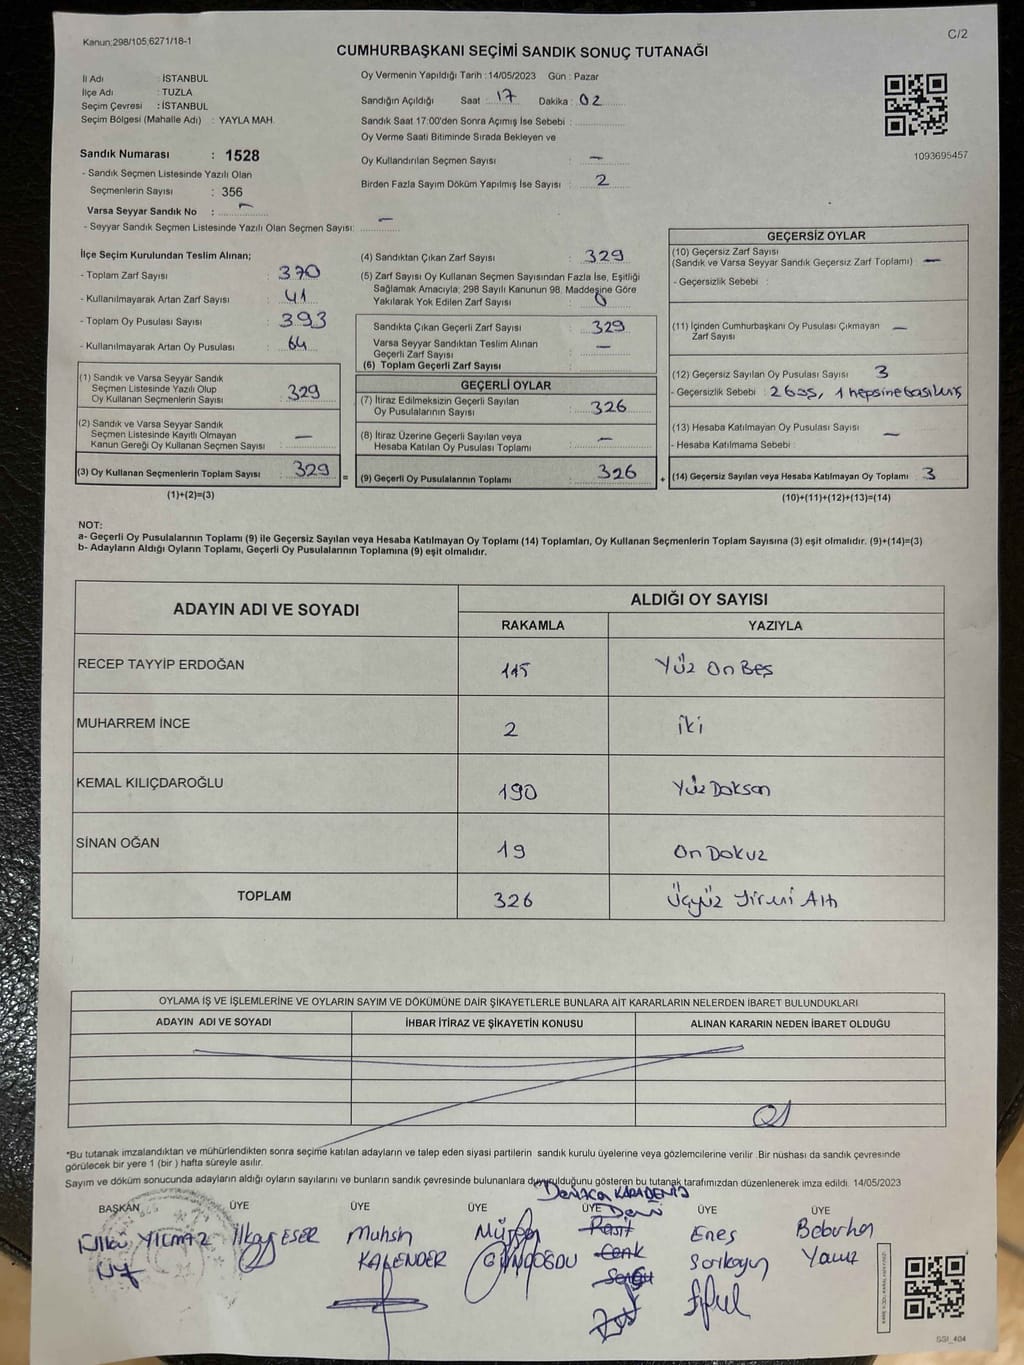 Kanun;298/105,6271/18-1
C/2
CUMHURBAŞKANI SEÇİMİ SANDIK SONUÇ TUTANAĞI
İl Adı : İSTANBUL
İlçe Adı : TUZLA
Seçim Çevresi : İSTANBUL
Seçim Bölgesi (Mahalle Adı) : YAYLA MAH.
Oy Vermenin Yapıldığı Tarih : 14/05/2023 Gün : Pazar
Sandığın Açıldığı Saat : 17 Dakika : 02
Sandık Saat 17:00'den Sonra Açımış İse Sebebi :
Oy Verme Saati Bitiminde Sırada Bekleyen ve
Oy Kullandırılan Seçmen Sayısı : —
Birden Fazla Sayım Döküm Yapılmış İse Sayısı : 2
1093695457
Sandık Numarası : 1528
- Sandık Seçmen Listesinde Yazılı Olan
Seçmenlerin Sayısı : 356
Varsa Seyyar Sandık No : —
- Seyyar Sandık Seçmen Listesinde Yazılı Olan Seçmen Sayısı: —
İlçe Seçim Kurulundan Teslim Alınan;
- Toplam Zarf Sayısı : 370
- Kullanılmayarak Artan Zarf Sayısı : 41
- Toplam Oy Pusulası Sayısı : 393
- Kullanılmayarak Artan Oy Pusulası : 64
(1) Sandık ve Varsa Seyyar Sandık
Seçmen Listesinde Yazılı Olup
Oy Kullanan Seçmenlerin Sayısı : 329
(2) Sandık ve Varsa Seyyar Sandık
Seçmen Listesinde Kayıtlı Olmayan
Kanun Gereği Oy Kullanan Seçmen Sayısı : —
(3) Oy Kullanan Seçmenlerin Toplam Sayısı : 329
(1)+(2)=(3)
=
(4) Sandıktan Çıkan Zarf Sayısı : 329
(5) Zarf Sayısı Oy Kullanan Seçmen Sayısından Fazla İse, Eşitliği
Sağlamak Amacıyla; 298 Sayılı Kanunun 98. Maddesine Göre
Yakılarak Yok Edilen Zarf Sayısı : 0
Sandıkta Çıkan Geçerli Zarf Sayısı : 329
Varsa Seyyar Sandıktan Teslim Alınan
Geçerli Zarf Sayısı : —
(6) Toplam Geçerli Zarf Sayısı :
GEÇERLİ OYLAR
(7) İtiraz Edilmeksizin Geçerli Sayılan
Oy Pusulalarının Sayısı : 326
(8) İtiraz Üzerine Geçerli Sayılan veya
Hesaba Katılan Oy Pusulası Toplamı : —
(9) Geçerli Oy Pusulalarının Toplamı : 326
+
GEÇERSİZ OYLAR
(10) Geçersiz Zarf Sayısı
(Sandık ve Varsa Seyyar Sandık Geçersiz Zarf Toplamı) : —
- Geçersizlik Sebebi :
(11) İçinden Cumhurbaşkanı Oy Pusulası Çıkmayan —
Zarf Sayısı
(12) Geçersiz Sayılan Oy Pusulası Sayısı : 3
- Geçersizlik Sebebi : 1 hepsine basılmış
(13) Hesaba Katılmayan Oy Pusulası Sayısı : —
- Hesaba Katılmama Sebebi :
(14) Geçersiz Sayılan veya Hesaba Katılmayan Oy Toplamı : 3
(10)+(11)+(12)+(13)=(14)
NOT:
a- Geçerli Oy Pusulalarının Toplamı (9) ile Geçersiz Sayılan veya Hesaba Katılmayan Oy Toplamı (14) Toplamları, Oy Kullanan Seçmenlerin Toplam Sayısına (3) eşit olmalıdır. (9)+(14)=(3)
b- Adayların Aldığı Oyların Toplamı, Geçerli Oy Pusulalarının Toplamına (9) eşit olmalıdır.
ADAYIN ADI VE SOYADI
ALDIĞI OY SAYISI
RAKAMLA YAZIYLA
RECEP TAYYİP ERDOĞAN 115 Yüz On Beş
MUHARREM İNCE 2 iki
KEMAL KILIÇDAROĞLU 190 Yüz Doksan
SİNAN OĞAN 19 On Dokuz
TOPLAM 326 Üçyüz Yirmi Altı
OYLAMA İŞ VE İŞLEMLERİNE VE OYLARIN SAYIM VE DÖKÜMÜNE DAİR ŞİKAYETLERLE BUNLARA AİT KARARLARIN NELERDEN İBARET BULUNDUKLARI
ADAYIN ADI VE SOYADI İHBAR İTİRAZ VE ŞİKAYETİN KONUSU ALINAN KARARIN NEDEN İBARET OLDUĞU
*Bu tutanak imzalandıktan ve mühürlendikten sonra seçime katılan adayların ve talep eden siyasi partilerin sandık kurulu üyelerine veya gözlemcilerine verilir .Bir nüshası da sandık çevresinde
görülecek bir yere 1 (bir ) hafta süreyle asılır.
Sayım ve döküm sonucunda adayların aldığı oyların sayılarını ve bunların sandık çevresinde bulunanlara duyurulduğunu gösteren bu tutanak tarafımızdan düzenlenerek imza edildi. 14/05/2023
KARADENİZ
BAŞKAN ÜYE ÜYE ÜYE ÜYE ÜYE ÜYE
YILMAZ İlkay ESER Muhsin Raşit Enes
KALENDER Cenk Sarıkaya Yavuz
SSI_404